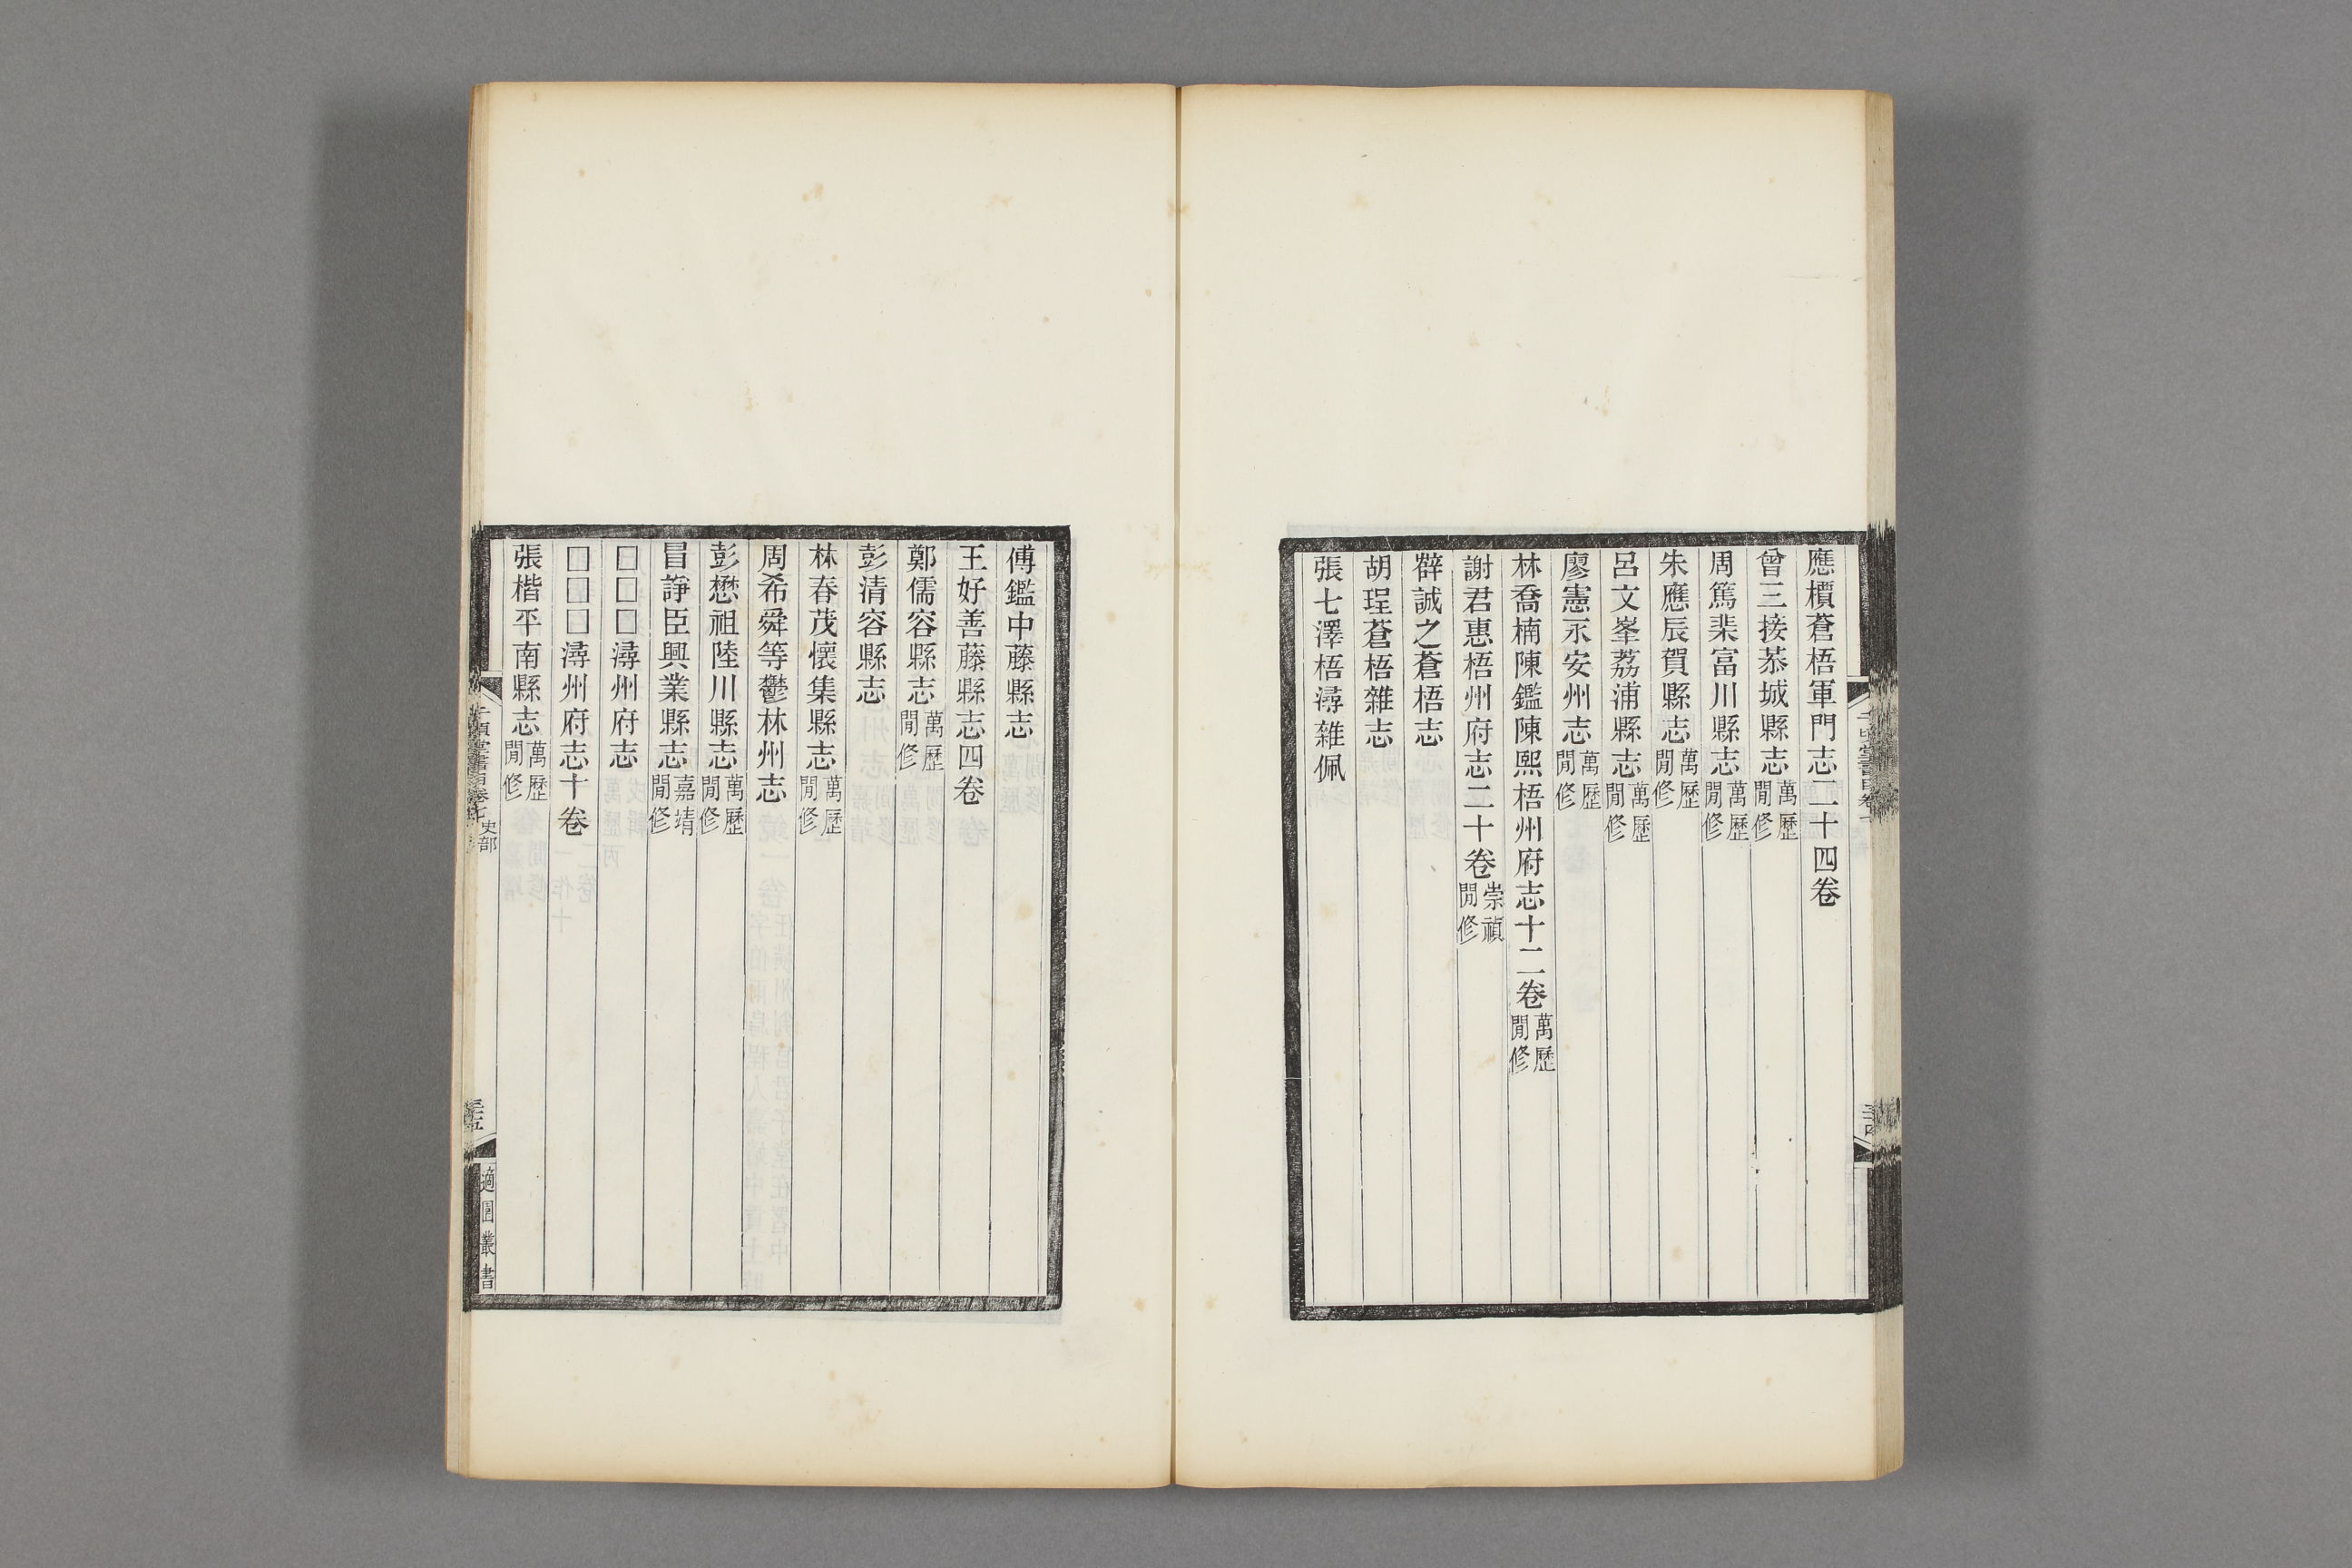 應檟蒼梧軍門志二十四卷
曾三接恭城縣志萬歷閒修
周篤棐富川縣志萬歷閒修
朱應辰賀縣志萬歷閒修
呂文峯荔浦縣志萬歷閒修
廖憲永安州志萬歷閒修
林喬楠陳鑑陳熙梧州府志十二卷萬歷閒修
謝君惠梧州府志二十卷崇禎閒修
辥誠之蒼梧志
胡珵蒼梧雜志
張七澤梧潯雜佩
傅鑑中藤縣志
王好善藤縣志四卷
鄭儒容縣志萬歷閒修
彭清容縣志
林春茂懷集縣志萬歷閒修
周希舜等鬱林州志
彭懋祖陸川縣志萬歷閒修
冒諍臣興業縣志嘉靖閒修
□□□潯州府志
□□□潯州府志十卷
張楷平南縣志萬歷閒修
千頃堂書目卷七史部
三十五
適園叢書